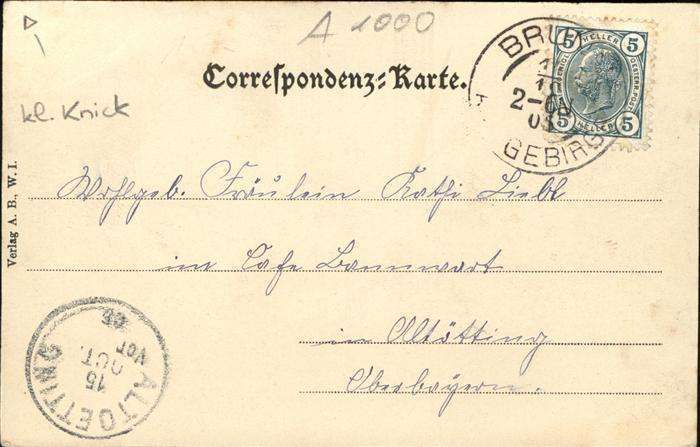 A 1000
Correspondenz-Karte.
kl. Knick
5 HELLER 5
5 HELLER 5
BRU
2-
03
GEBIRG
Verlag A. B., W. I.
Wohlgeb. Fräulein Kathi Liebl
im Cafe Bannwart
in Altötting
Oberbayern.
ALTOETTING
15
OCT.
Vor
03